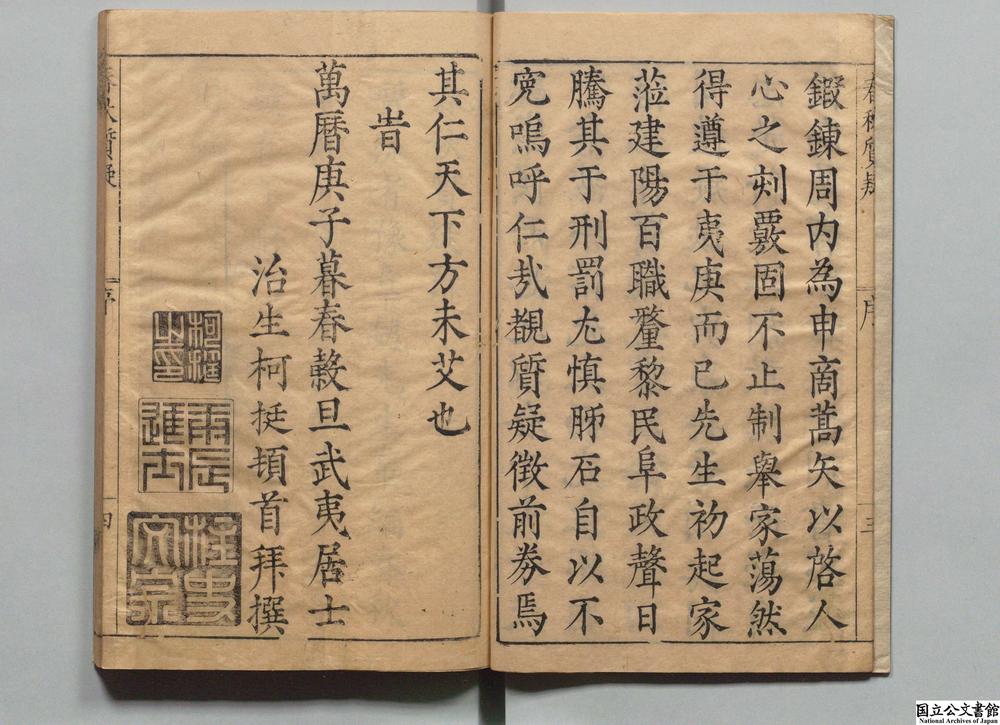 春秋質疑
序
三
鍜鍊周内為申商蒿矢以啓人
心之刻覈固不止制舉家蕩然
得遵于夷庚而已先生初起家
蒞建陽百職釐黎民阜政聲日
騰其于刑罰尤慎肺石自以不
寃嗚呼仁㢤觀質疑徴前劵焉
其仁天下方未艾也
旹
萬曆庚子暮春穀旦武夷居士
治生柯挻頓首拜撰
柯挻之印
丙辰進士
柱史之家
春秋質疑
序
四
国立公文書館
National Archives of Japan